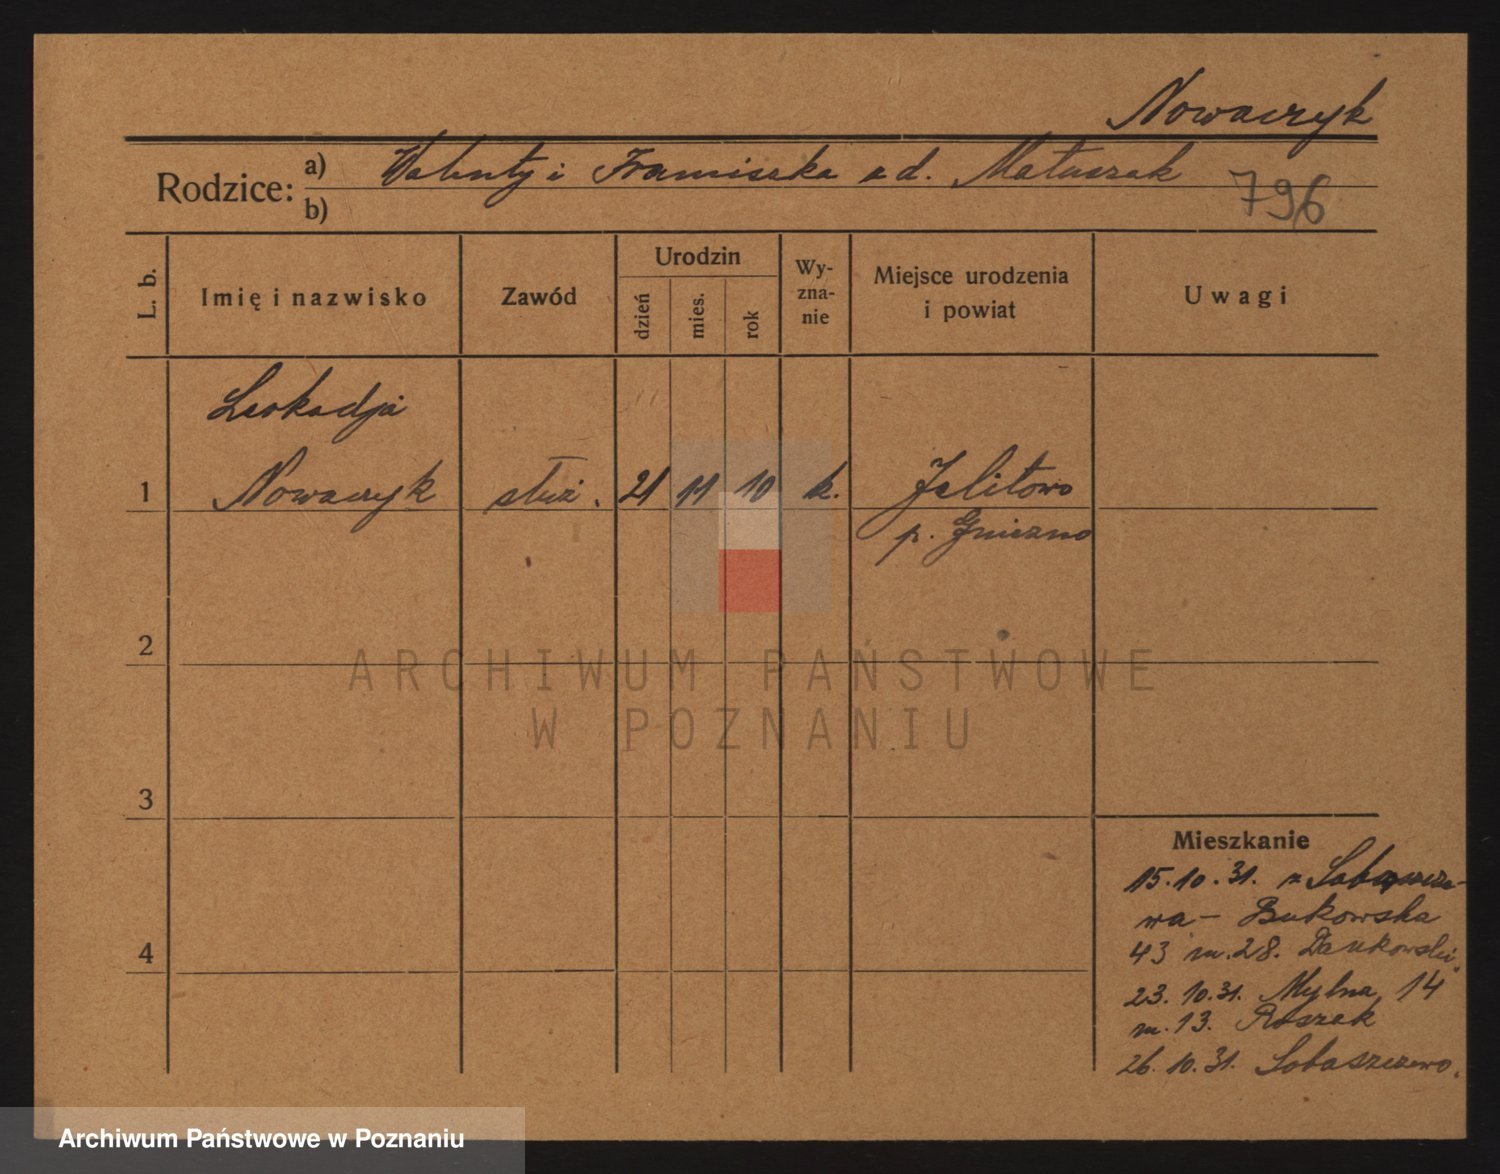 Nowaczyk
Rodzice: a) Walenty i Franciszka z d. Matuszak
b)
796
L. b.
Imię i nazwisko
Zawód
Urodzin
dzień
mies.
rok
Wy-
zna-
nie
Miejsce urodzenia
i powiat
Uwagi
Leokadja
1 Nowaczyk służ. 21 11 10 k. Jelitowo
p. Gniezno
2
3
4
Mieszkanie
15.10.31. z
wa - Bukowska
43 m. 28.
23.10.31. Mylna 14
m. 13. Roszak
26.10.31. Sobaszczewo.
ARCHIWUM PAŃSTWOWE
W POZNANIU
Archiwum Państwowe w Poznaniu